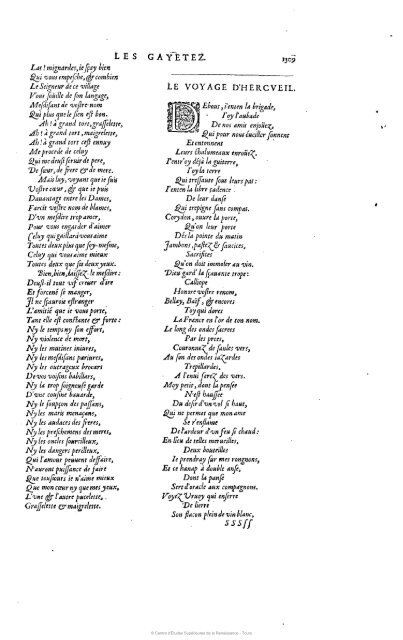 LES GAYETEZ.
1309
Las! mignardes, ie sçay bien
Qui vous empesche, & combien
Le Seigneur de ce village
Vous souille de son langage,
Mesdisant de vostre nom
Qui plus que le sien est bon.
Ah! à grand tort, grasselette,
Ah! à grand tort, maigrelette,
Ah! à grand tort cest ennuy
Me procede de celuy
Qui me deust seruir de pere,
De sœur, de frere & de mere.
Mais luy, voyant que ie suis
Vostre cœur, & que ie puis
Dauantage entre les Dames,
Farcit vostre nom de blames,
D'vn mesdire trop amer,
Pour vous engarder d'aimer
Celuy qui gaillard vous aime
Toutes deux plus que soy-mesme,
Celuy qui vous aime mieux
Toutes deux que ses deux yeux.
Bien, bien, laissez le mesdire:
Deust-il tout vif creuer d'ire
Et forcené se manger,
Il ne sçauroit estranger
L'amitié que ie vous porte,
Tant elle est constante & forte:
Ny le temps ny son effort,
Ny violence de mort,
Ny les mutines iniures,
Ny les mesdisans pariures,
Ny les outrageux brocars
De vos voisins babillars,
Ny la trop soigneuse garde
D'vne cousine bauarde,
Ny le soupçon des passans,
Ny les maris menaçans,
Ny les audaces des freres,
Ny les preschemens des meres,
Ny les oncles sourcilleux,
Ny les dangers perilleux,
Qui l'amour peuuent deffaire,
N'auront puissance de faire
Que tousiours ie n'aime mieux
Que mon cœur ny que mes yeux,
L'vne & l'autre pucelette,
Grasselette & maigrelette.
LE VOYAGE D'HERCVEIL.
Debout, i'enten la brigade,
I'oy l'aubade
De nos amis enjoüez,
Qui pour nous éueiller sonnent
Et entonnent
Leurs chalumeaux enroüez.
I'entr'oy déjà la guiterre,
I'oy la terre
Qui tressaute sous leurs pas:
I'enten la libre cadence
De leur danse
Qui trepigne sans compas.
Corydon, ouure la porte,
Qu'on leur porte
Dés la pointe du matin
Jambons, pastez & saucices,
Sacrifices
Qu'on doit immoler au vin.
Dieu gard' la sçauante trope:
Calliope
Honore vostre renom,
Bellay, Baïf, & encores
Toy qui dores
La France en l'or de ton nom.
Le long des ondes sacrees
Par les prees,
Couronnez de saules vers,
Au son des ondes iazardes
Trepillardes,
A l'enui ferez des vers.
Moy petit, dont la pensée
N'est haussée
Du desir d'vn vol si haut,
Qui ne permet que mon ame
Se r'enflame
De l'ardeur d'vn feu si chaud:
En lieu de telles merueilles,
Deux bouteilles
Ie prendray sur mes rongnons,
Et ce hanap à double anse,
Dont la panse
Sert d'oracle aux compagnons.
Voyez Vruoy qui enserre
De lierre
Son flacon plein de vin blanc,
SSSſſ
© Centre d'Études Supérieures de la Renaissance - Tours